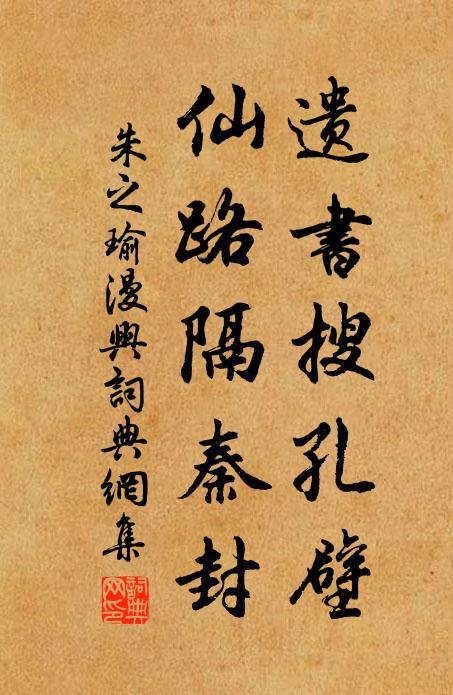 遺書搜孔壁
仙路隔秦封
朱之瑜漫興詞典網集
詞典
网印